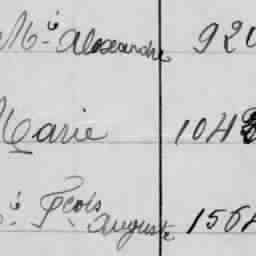 Mⁱᵉ Alexandre 920
Marie 104
Fcois Auguste 156